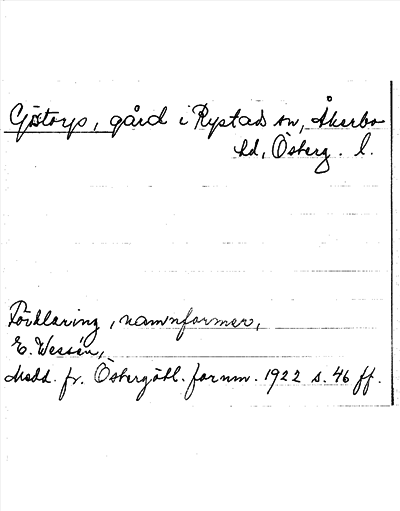 Göstorp, gård i Rystad sn, Åkerbo
hd, Österg. l.
Förklaring, namnformer,
E. Wessén,
Medd. fr. Östergötl. fornm. 1922 s. 46 ff.